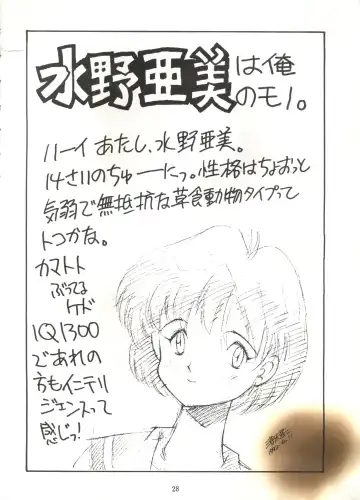 水野亜美は俺
のモノ。
ハーイ あたし、水野亜美。
14さいのちゅーにっ。性格はちょおっと
気弱で無抵抗な草食動物タイプって
トコかな。
カマトト
ぶってる
ケド
IQ1300
であれの
方もインテリ
ジェンスって
感じっ!
28